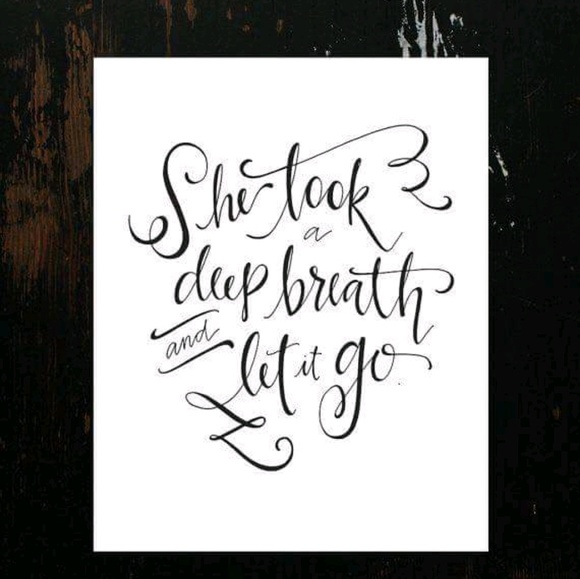 She took
a
deep breath
and
let it go.